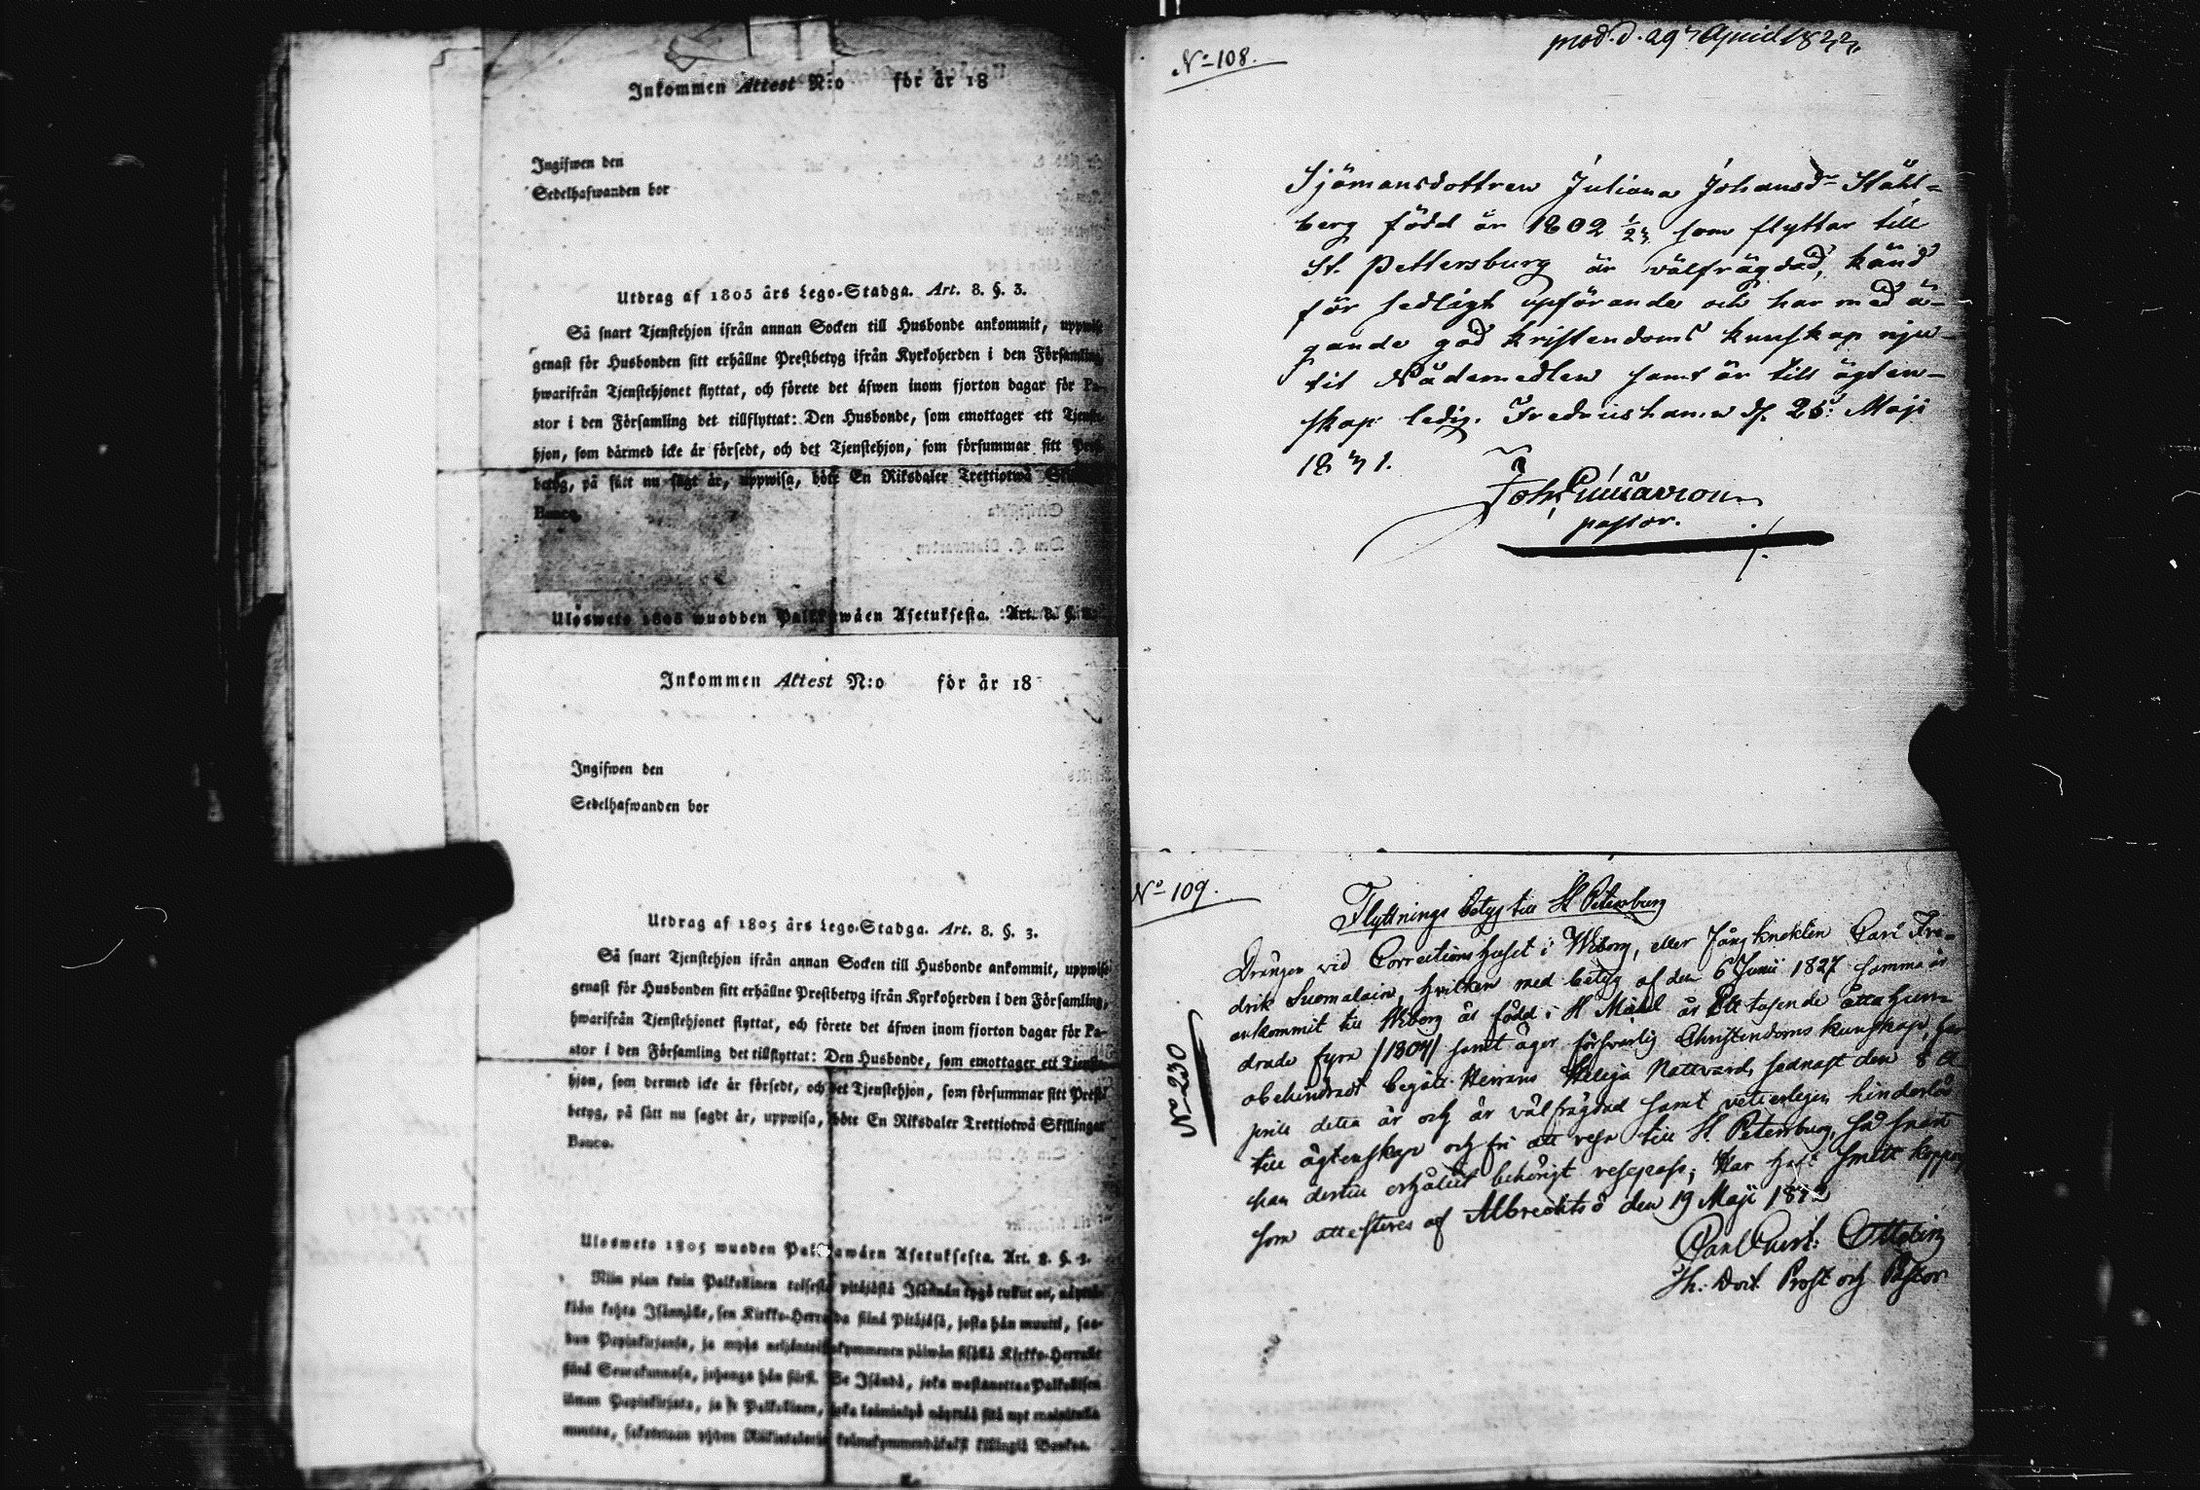 Inkommen Attest N:o för år 18
Ingifwen den
Sedelhafwanden bor
Utdrag af 1805 års Lego-Stadga. Art. 8. §. 3.
Så snart Tjenstehjon ifrån annan Socken till Husbonde ankommit, uppwise
genast för Husbonden sitt erhållne Prestbetyg ifrån Kyrkoherden i den Församling,
hwarifrån Tjenstehjonet flyttat, och förete det äfwen inom fjorton dagar för Pa-
stor i den Församling det tillflyttat: Den Husbonde, som emottager ett Tjenste-
hjon, som därmed icke är försedt, och det Tjenstehjon, som försummar sitt Prest-
betyg, på sätt nu sagt är, uppwisa, böte En Riksdaler Trettiotwå
Banco.
Ulosweto 1805 wuodden Palkkawäen Asetuksesta. Art. 8. §.
Inkommen Attest N:o för år 18
Ingifwen den
Sedelhafwanden bor
Utdrag af 1805 års Lego-Stadga. Art. 8. §. 3.
Så snart Tjenstehjon ifrån annan Socken till Husbonde ankommit, uppwise
genast för Husbonden sitt erhållne Prestbetyg ifrån Kyrkoherden i den Församling,
hwarifrån Tjenstehjonet flyttat, och förete det äfwen inom fjorton dagar för Pa-
stor i den Församling det tillflyttat: Den Husbonde, som emottager ett Tjenste-
hjon, som dermed icke är försedt, och det Tjenstehjon, som försummar sitt Prest-
betyg, på sätt nu sagdt är, uppwisa, böte En Riksdaler Trettiotwå Skillingar
Banco.
Ulosweto 1805 wuoden Palkkawäen Asetuksesta. Art. 8. §. 3.
Niin pian kuin Palkollinen toisesta pitäjästä Isännän tygö tullut on,
kohta Isännälle, sen Kirkko-Herralda siinä Pitäjäsä, josta hän muutti, saa-
dun Papinkirjansa, ja myös neljäntoistakymmenen päiwän sisällä Kirkko-Herralle
siinä Seurakunnasa, johonga hän siirsi. Se Isändä, joka wastanottaa Palkollisen
ilman Papinkirjata, ja se Palkollinen, joka laiminlyö näyttää sitä nyt mainitulla
muotoa, kolmekymmendäkaksi killingiä Bankoa.
N° 108.
prod. d. 29 April 1833.
Sjömansdottren Juliana Johansd:r Ståhl-
berg född år 1802 1/23 som flyttar till
St. Pettersburg är välfrägdad, känd
för sedligt upförande och har med ä-
gande god kristendoms kunskap nju-
tit Nådemedlen samt är till ägten-
skap ledig. Fredricshamn d. 25 Maji
1831.
Joh.
pastor.
N° 109.
Flyttnings betyg till St Petersburg
Drängen vid Corrections huset i Wiborg, eller Fångknekten Carl Fre-
drik Suomalain, hvilken med betyg af den 6 Junii 1827 samma år
ankommit till Wiborg är född i St Michel år Ett tusende åtta hun-
drade fyra /1804/ samt äger försvarlig Christendoms kunskap, har
obehindradt begått Herrans Heliga Nattvard, sednast den 8 A-
prill detta år och är välfrägdad samt veterligen hinderlös
till ägtenskap och fri att resa till St. Petersburg, så snart
han dertill erhållit behörigt respass; Har haft Smitt koppor
som attesteras af Albrechtsö den 19 Maji
N° 230
Carl
Th: Doct. Prost och Pastor